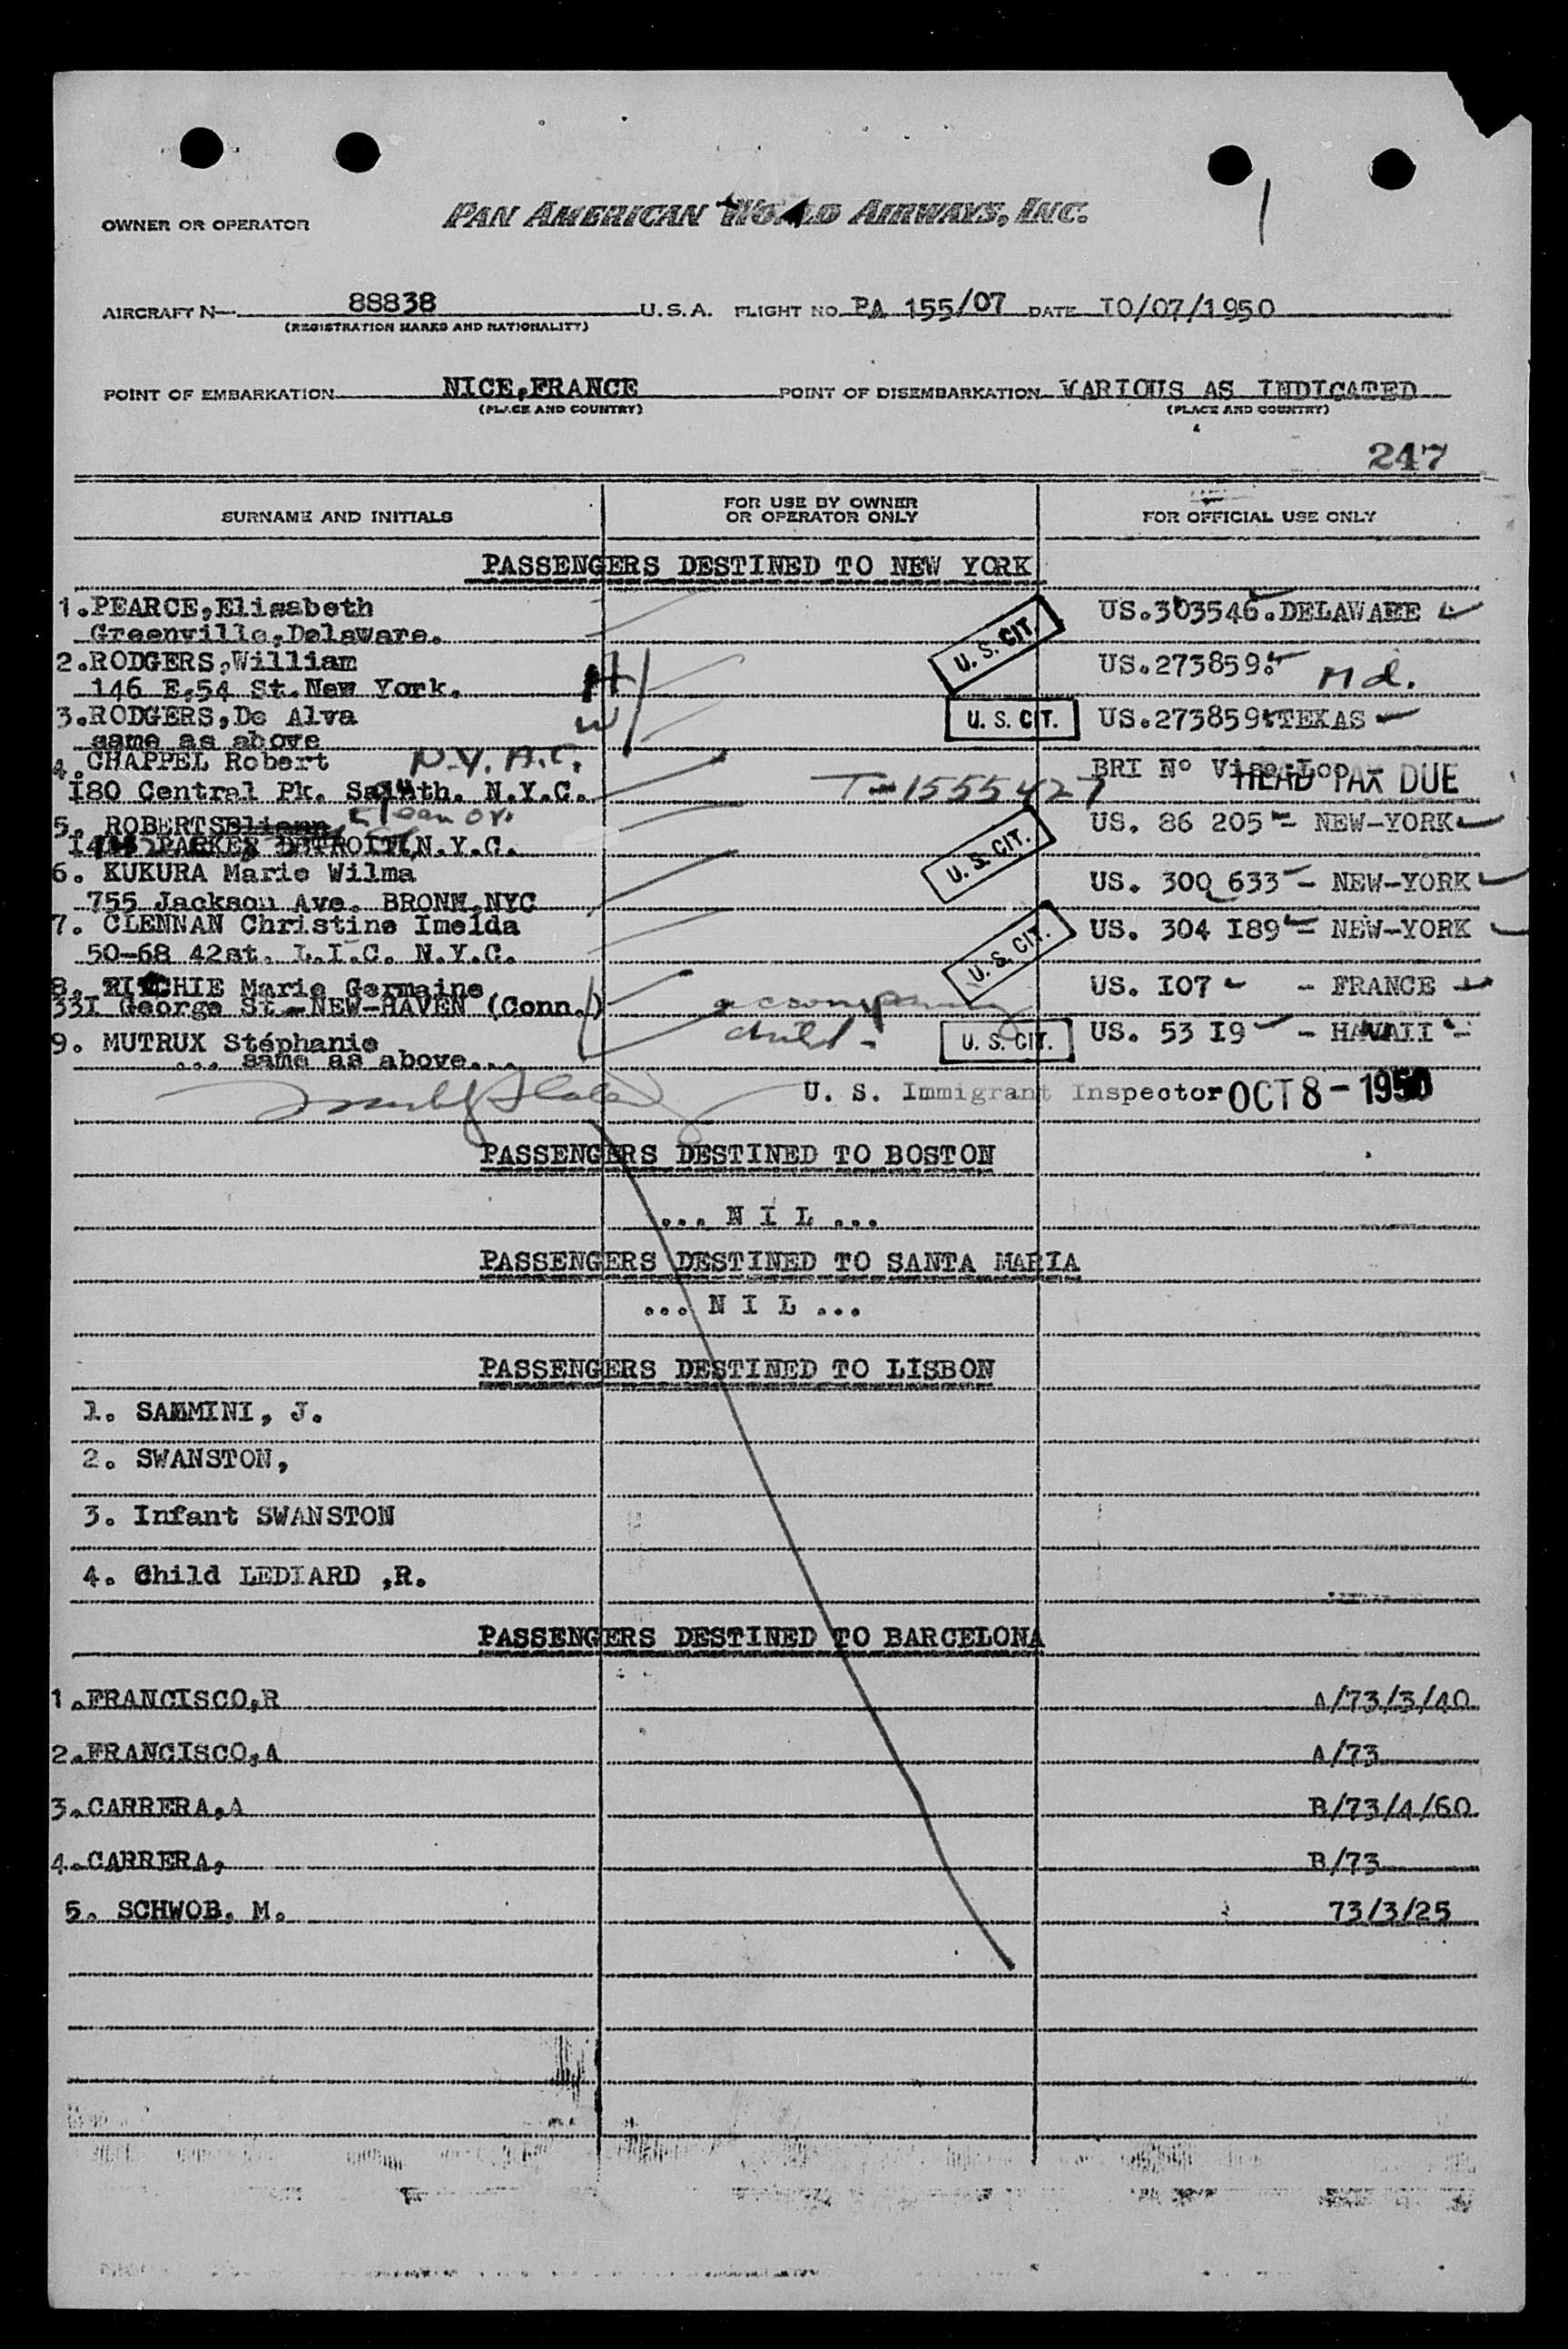 OWNER OR OPERATOR PAN AMERICAN WORLD AIRWAYS, INC.
AIRCRAFT N 88838 U.S.A. FLIGHT NO. PA 155/07 DATE I0/07/1950
(REGISTRATION MARKS AND NATIONALITY)
POINT OF EMBARKATION NICE,FRANCE POINT OF DISEMBARKATION VARIOUS AS INDICATED
(PLACE AND COUNTRY) (PLACE AND COUNTRY)
247
SURNAME AND INITIALS FOR USE BY OWNER OR OPERATOR ONLY FOR OFFICIAL USE ONLY
PASSENGERS DESTINED TO NEW YORK
1.PEARCE,Elisabeth US.303546.DELAWARE
Greenville,Delaware. U. S. CIT.
2.RODGERS,William US.273859. Md.
146 E.54 St.New York. H
3.RODGERS,De Alva W U. S. CIT. US.273859 TEXAS
same as above
4.CHAPPEL Robert N.Y. A.C. BRI Nº Visa HEAD TAX DUE
I80 Central Pk. South. N.Y.C. T-1555427
5. ROBERTS Eleanor. US. 86 205 - NEW-YORK
PARKER DETROIT,N.Y.C. U. S. CIT.
6. KUKURA Marie Wilma US. 300 633 - NEW-YORK
755 Jackson Ave. BRONX.NYC
7. CLENNAN Christine Imelda US. 304 I89 = NEW-YORK
50-68 42st. L.I.C. N.Y.C. U. S. CIT.
8. RITCHIE Marie Germaine US. I07 - FRANCE
33I George St.-NEW-HAVEN (Conn.) accompanying
9. MUTRUX Stéphanie child. U. S. CIT. US. 53 I9 - HAWAII -
... same as above...
U. S. Immigrant Inspector OCT 8 - 1950
PASSENGERS DESTINED TO BOSTON
... N I L ...
PASSENGERS DESTINED TO SANTA MARIA
... N I L ...
PASSENGERS DESTINED TO LISBON
1. SAMMINI, J.
2. SWANSTON,
3. Infant SWANSTON
4. Child LEDIARD ,R.
PASSENGERS DESTINED TO BARCELONA
1.FRANCISCO,R A/73/3/40
2.FRANCISCO,A A/73
3.CARRERA,A B/73/4/60
4.CARRERA, B/73
5. SCHWOB. M. 73/3/25